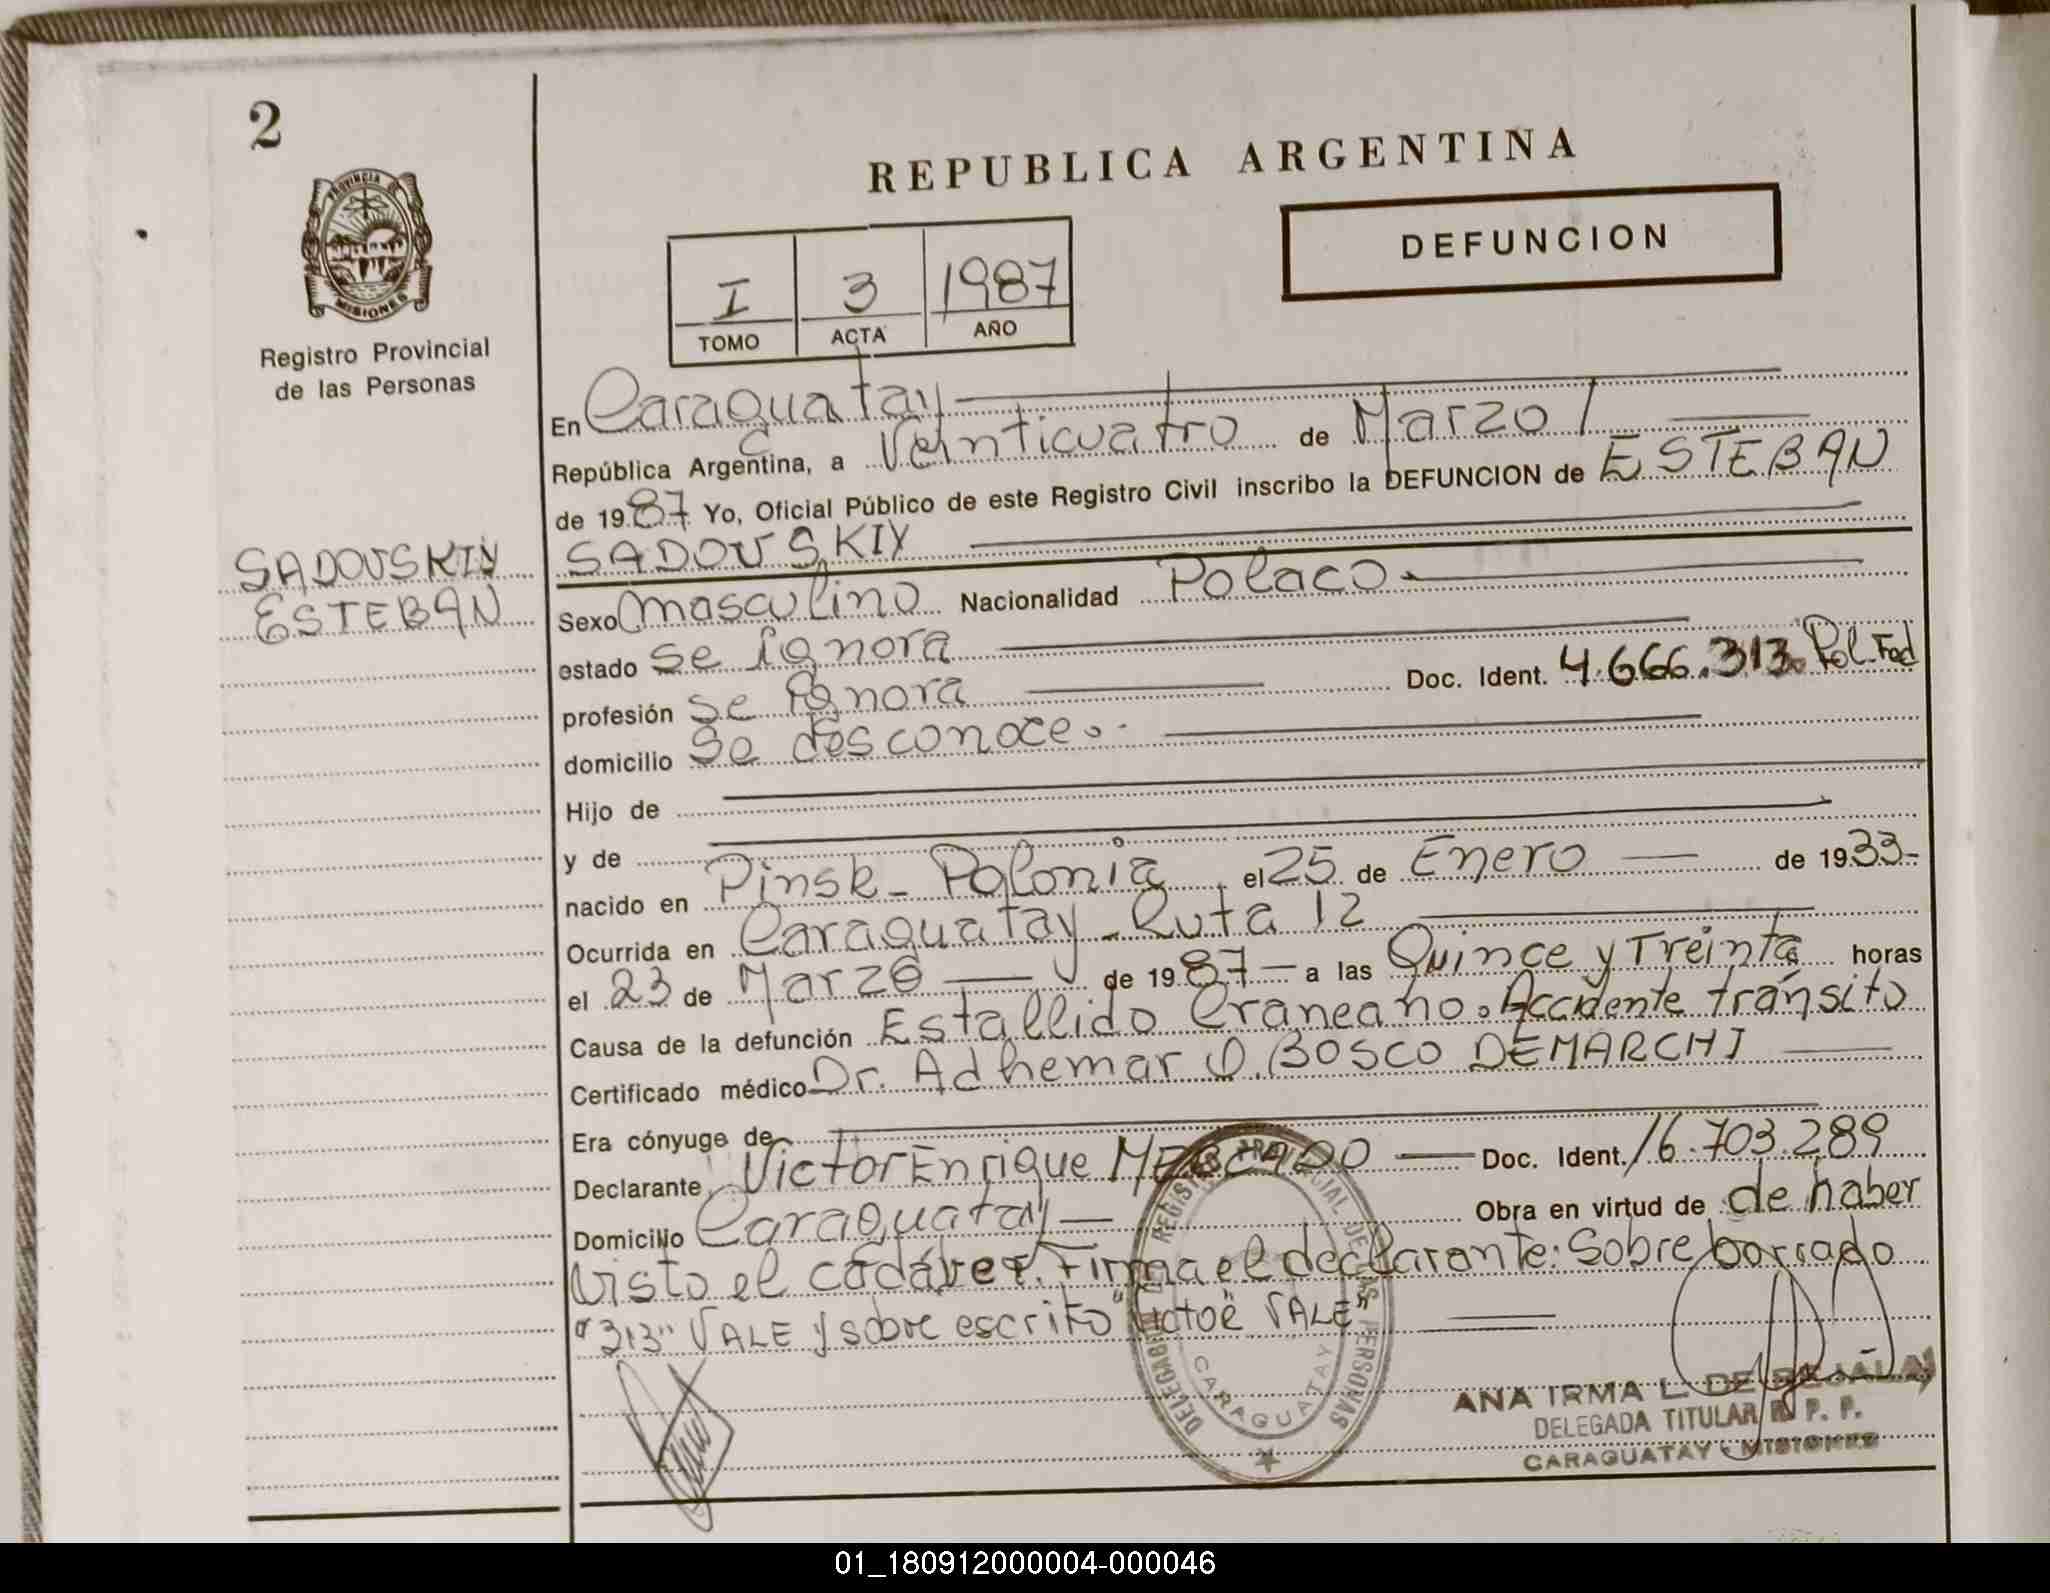 2
PROVINCIA DE
MISIONES
Registro Provincial
de las Personas
REPUBLICA ARGENTINA
DEFUNCION
I 3 1987
TOMO ACTA AÑO
En Caraguatay
República Argentina, a Veinticuatro de Marzo
de 1987 Yo, Oficial Público de este Registro Civil inscribo la DEFUNCION de ESTEBAN
SADOVSKIY
SADOVSKIY
ESTEBAN
Sexo masculino Nacionalidad Polaco.
estado se ignora
Doc. Ident. 4.666.313. Pol. Fed
profesión se ignora
domicilio se desconoce.
Hijo de
y de
nacido en Pinsk - Polonia el 25 de Enero de 1933-
Ocurrida en Caraguatay - Ruta 12
el 23 de Marzo de 1987 a las Quince y Treinta horas
Causa de la defunción Estallido Craneano. Accidente tránsito
Certificado médico Dr. Adhemar O. BOSCO DEMARCHI
Era cónyuge de
Declarante Victor Enrique MERCADO Doc. Ident. 16.703.289
Domicilio Caraguatay Obra en virtud de de haber
visto el cadáver. Firma el declarante: Sobre borrado
"313" VALE y sobre escrito VALE"
DELEGACION REGISTRO PROVINCIAL DE LAS PERSONAS
CARAGUATAY
ANA IRMA L. DE
DELEGADA TITULAR R. P. P.
CARAGUATAY - MISIONES
01_180912000004-000046